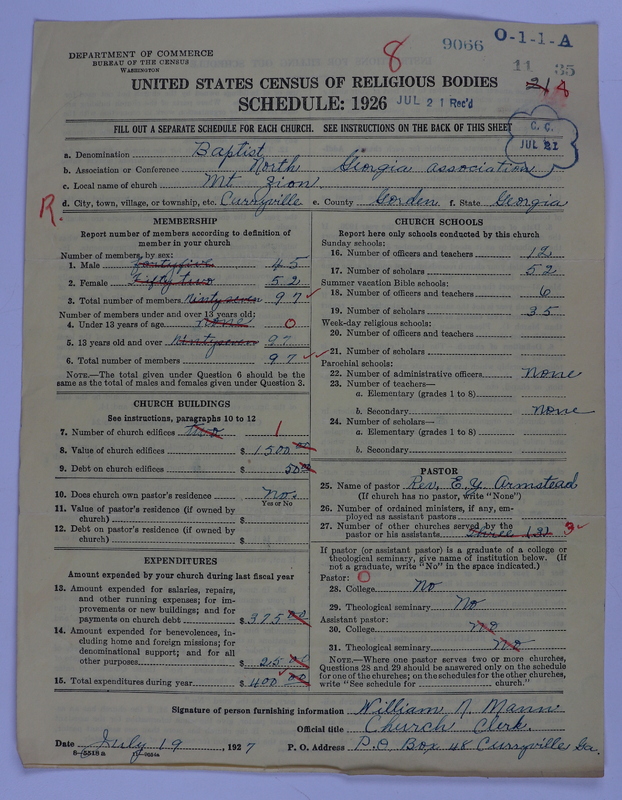 DEPARTMENT OF COMMERCE
BUREAU OF THE CENSUS
WASHINGTON
8
9066
O-1-1-A
11 35
UNITED STATES CENSUS OF RELIGIOUS BODIES
SCHEDULE: 1926
JUL 21 Rec'd
FILL OUT A SEPARATE SCHEDULE FOR EACH CHURCH. SEE INSTRUCTIONS ON THE BACK OF THIS SHEET
C. C.
JUL 21
a. Denomination Baptist
b. Association or Conference North Georgia association
c. Local name of church Mt Zion
d. City, town, village, or township, etc. Curryville e. County Gorden f. State Georgia
R.
MEMBERSHIP
Report number of members according to definition of member in your church
Number of members, by sex:
1. Male Fortyfive 45
2. Female Fifty two 52
3. Total number of members Ninty seven 97
Number of members under and over 13 years old:
4. Under 13 years of age none 0
5. 13 years old and over Nintyseven 97
6. Total number of members 97
NOTE.—The total given under Question 6 should be the same as the total of males and females given under Question 3.
CHURCH BUILDINGS
See instructions, paragraphs 10 to 12
7. Number of church edifices two 1
8. Value of church edifices $ 1500.00
9. Debt on church edifices $ 50.00
10. Does church own pastor's residence No.
Yes or No
11. Value of pastor's residence (if owned by church) $
12. Debt on pastor's residence (if owned by church) $
EXPENDITURES
Amount expended by your church during last fiscal year
13. Amount expended for salaries, repairs, and other running expenses; for improvements or new buildings; and for payments on church debt $ 375.00
14. Amount expended for benevolences, including home and foreign missions; for denominational support; and for all other purposes $ 25.00
15. Total expenditures during year $ 400.00
CHURCH SCHOOLS
Report here only schools conducted by this church
Sunday schools:
16. Number of officers and teachers 12
17. Number of scholars 52
Summer vacation Bible schools:
18. Number of officers and teachers 6
19. Number of scholars 35
Week-day religious schools:
20. Number of officers and teachers
21. Number of scholars
Parochial schools:
22. Number of administrative officers None
23. Number of teachers—
a. Elementary (grades 1 to 8)
b. Secondary None
24. Number of scholars—
a. Elementary (grades 1 to 8)
b. Secondary
PASTOR
25. Name of pastor Rev. E. Y. Armstead
(If church has no pastor, write "None")
26. Number of ordained ministers, if any, employed as assistant pastors
27. Number of other churches served by the pastor or his assistants. Three (3) 3
If pastor (or assistant pastor) is a graduate of a college or theological seminary, give name of institution below. (If not a graduate, write "No" in the space indicated.)
Pastor: 0
28. College No
29. Theological seminary No
Assistant pastor:
30. College No
31. Theological seminary No
NOTE.—Where one pastor serves two or more churches, Questions 28 and 29 should be answered only on the schedule for one of the churches; on the schedules for the other churches, write "See schedule for church."
Signature of person furnishing information William N. Mann
Official title Church Clerk.
Date July 19, 1927 P. O. Address P.O. Box 48 Curryville Ga.
8-5518 a